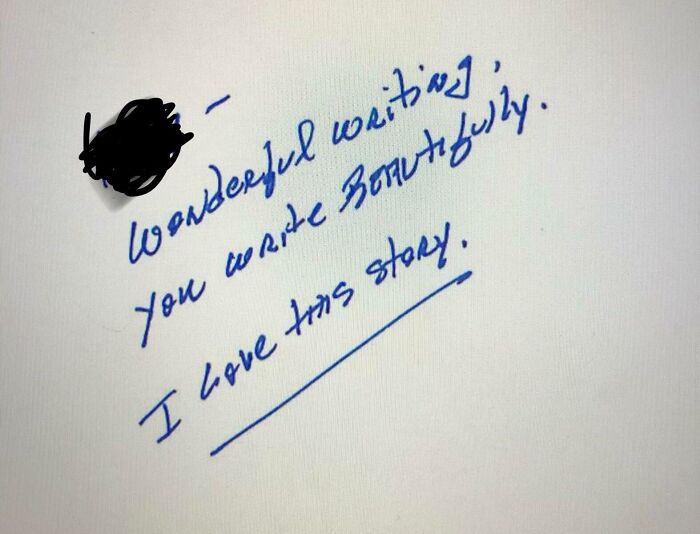 Wonderful writing,
you write BEAutifully.
I love this story.